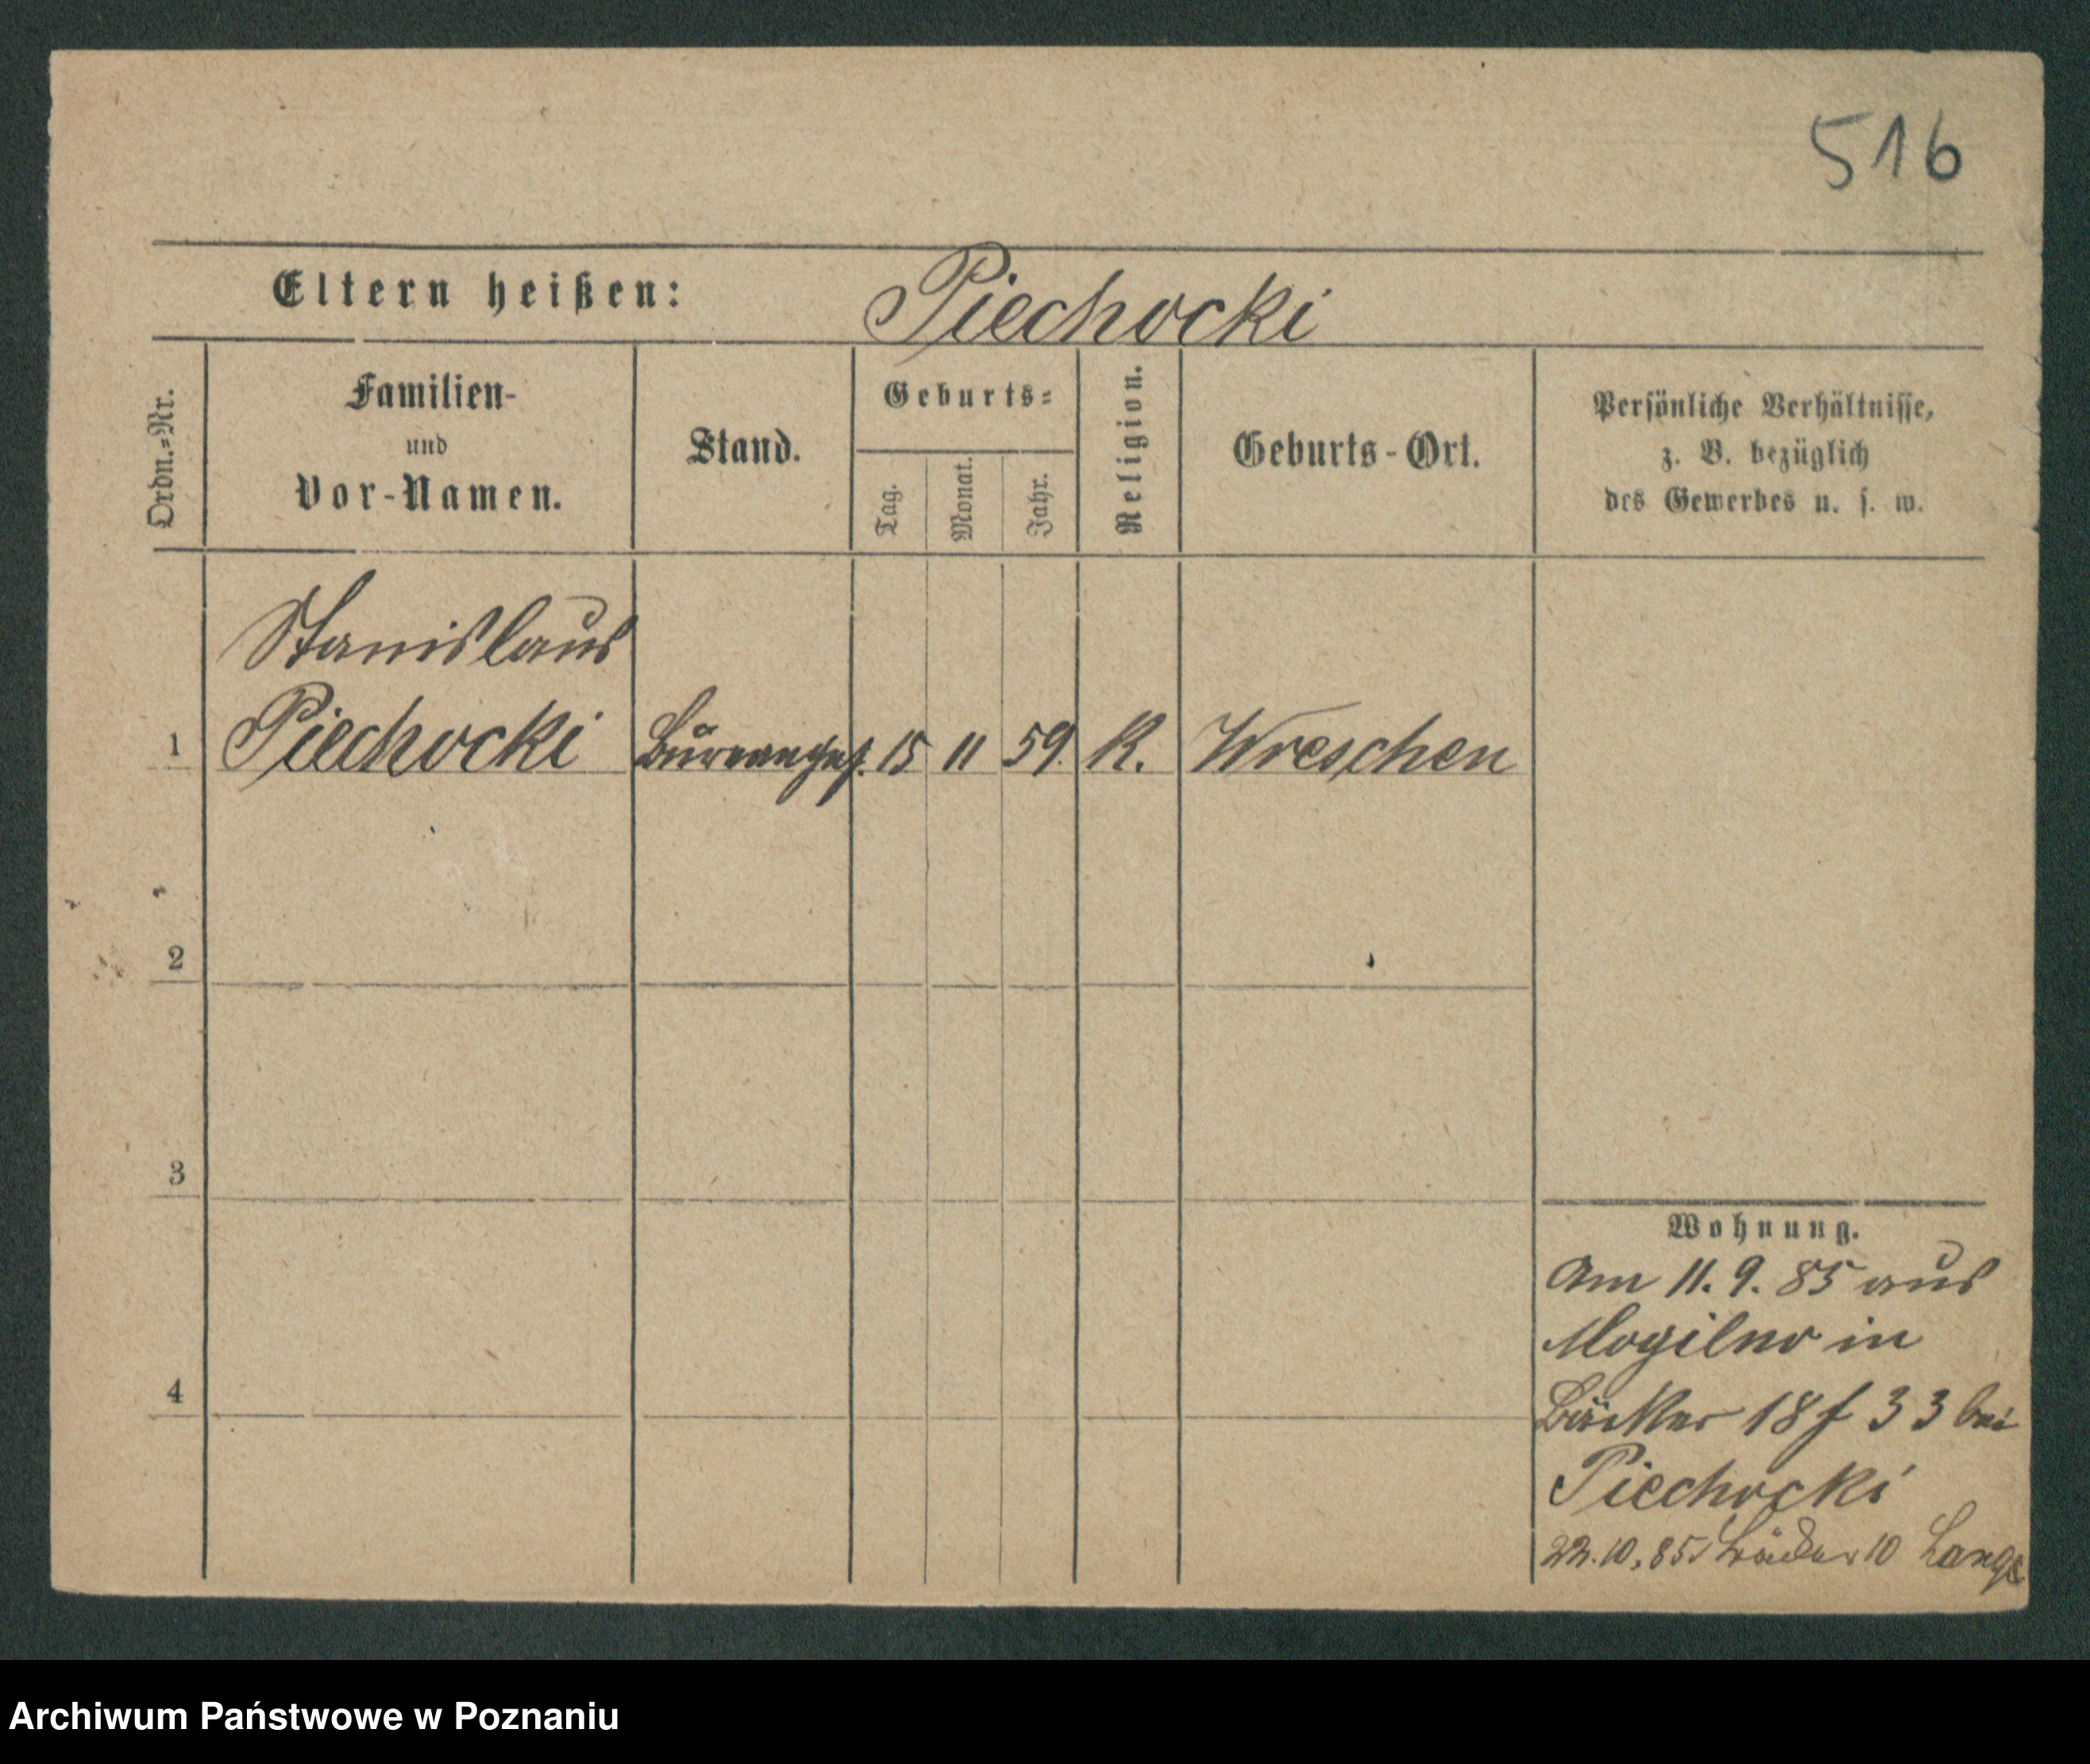 516
Eltern heißen: Piechocki
Ordn.-Nr.
Familien-
und
Vor-Namen.
Stand.
Geburts-
Tag.
Monat.
Jahr.
Religion.
Geburts-Ort.
Persönliche Verhältnisse,
z. B. bezüglich
des Gewerbes u. s. w.
Stanislaus
1 Piechocki 15 11 59. K. Wreschen
2
3
4
Wohnung.
Am 11. 9. 85 aus
Mogilno in
Bäcker 18 f 33 bei
Piechocki
22. 10. 85 Bäcker 10 Lange
Archiwum Państwowe w Poznaniu